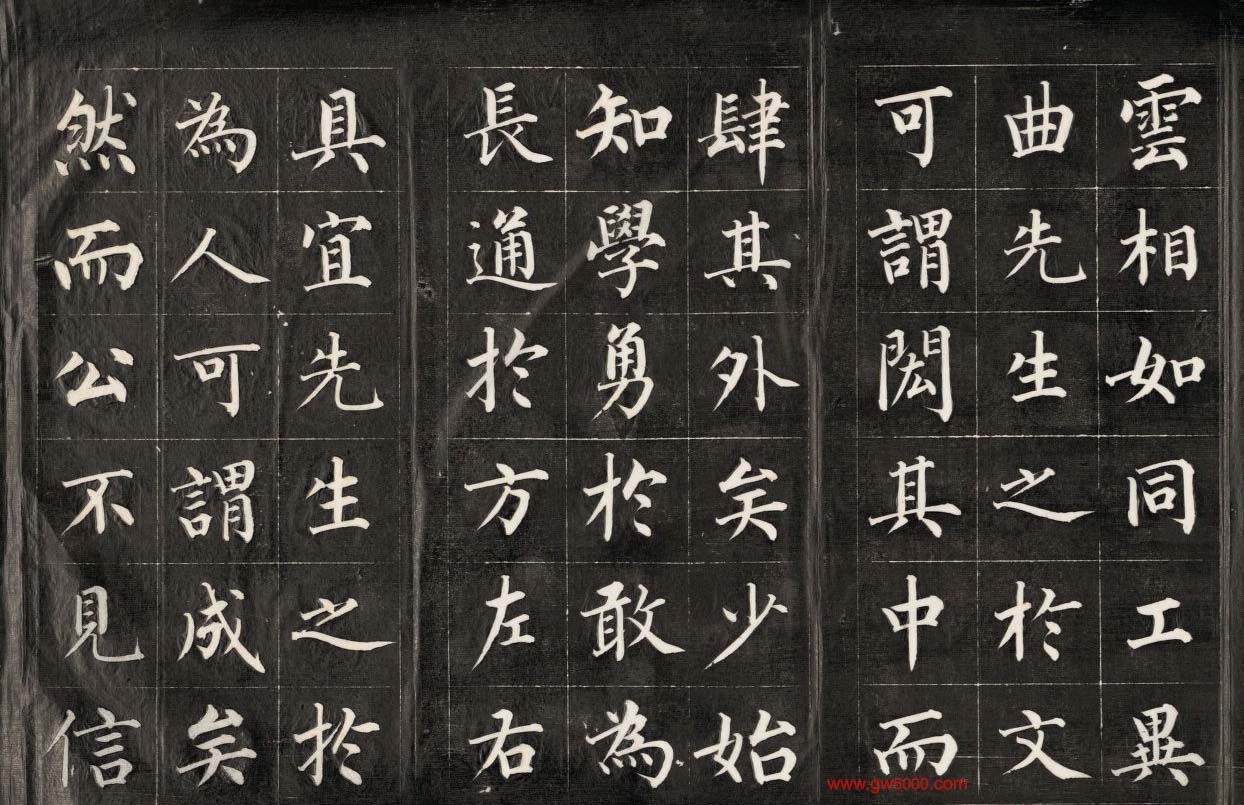 雲相如同工異
曲先生之於文
可謂閎其中而
肆其外矣少始
知學勇於敢為
長通於方左右
具宜先生之於
為人可謂成矣
然而公不見信
www.gw5000.com